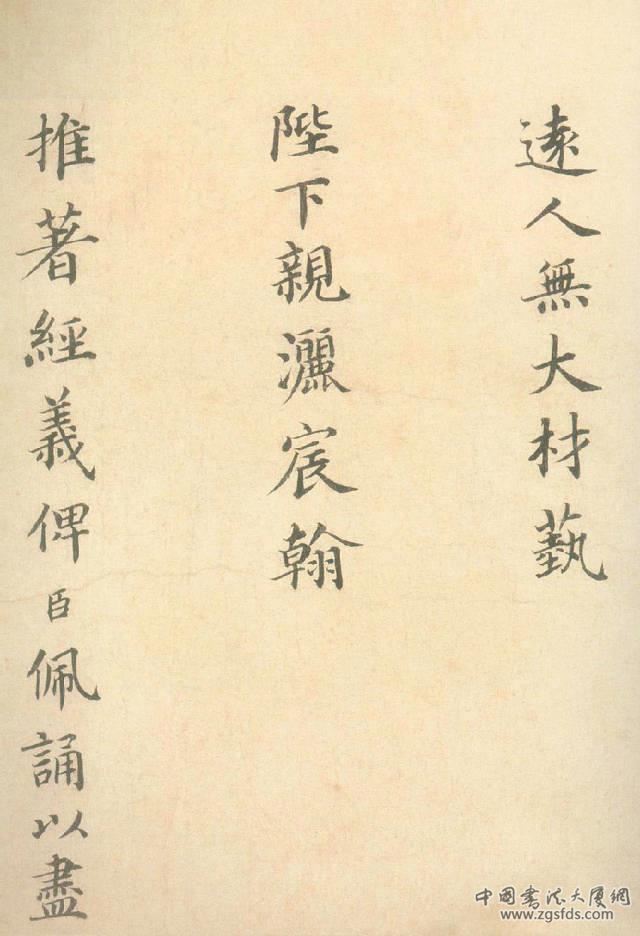 逺人無大材藝
陛下親灑宸翰
推著經義俾臣佩誦以盡
中国书法大厦網
www.zgsfds.com